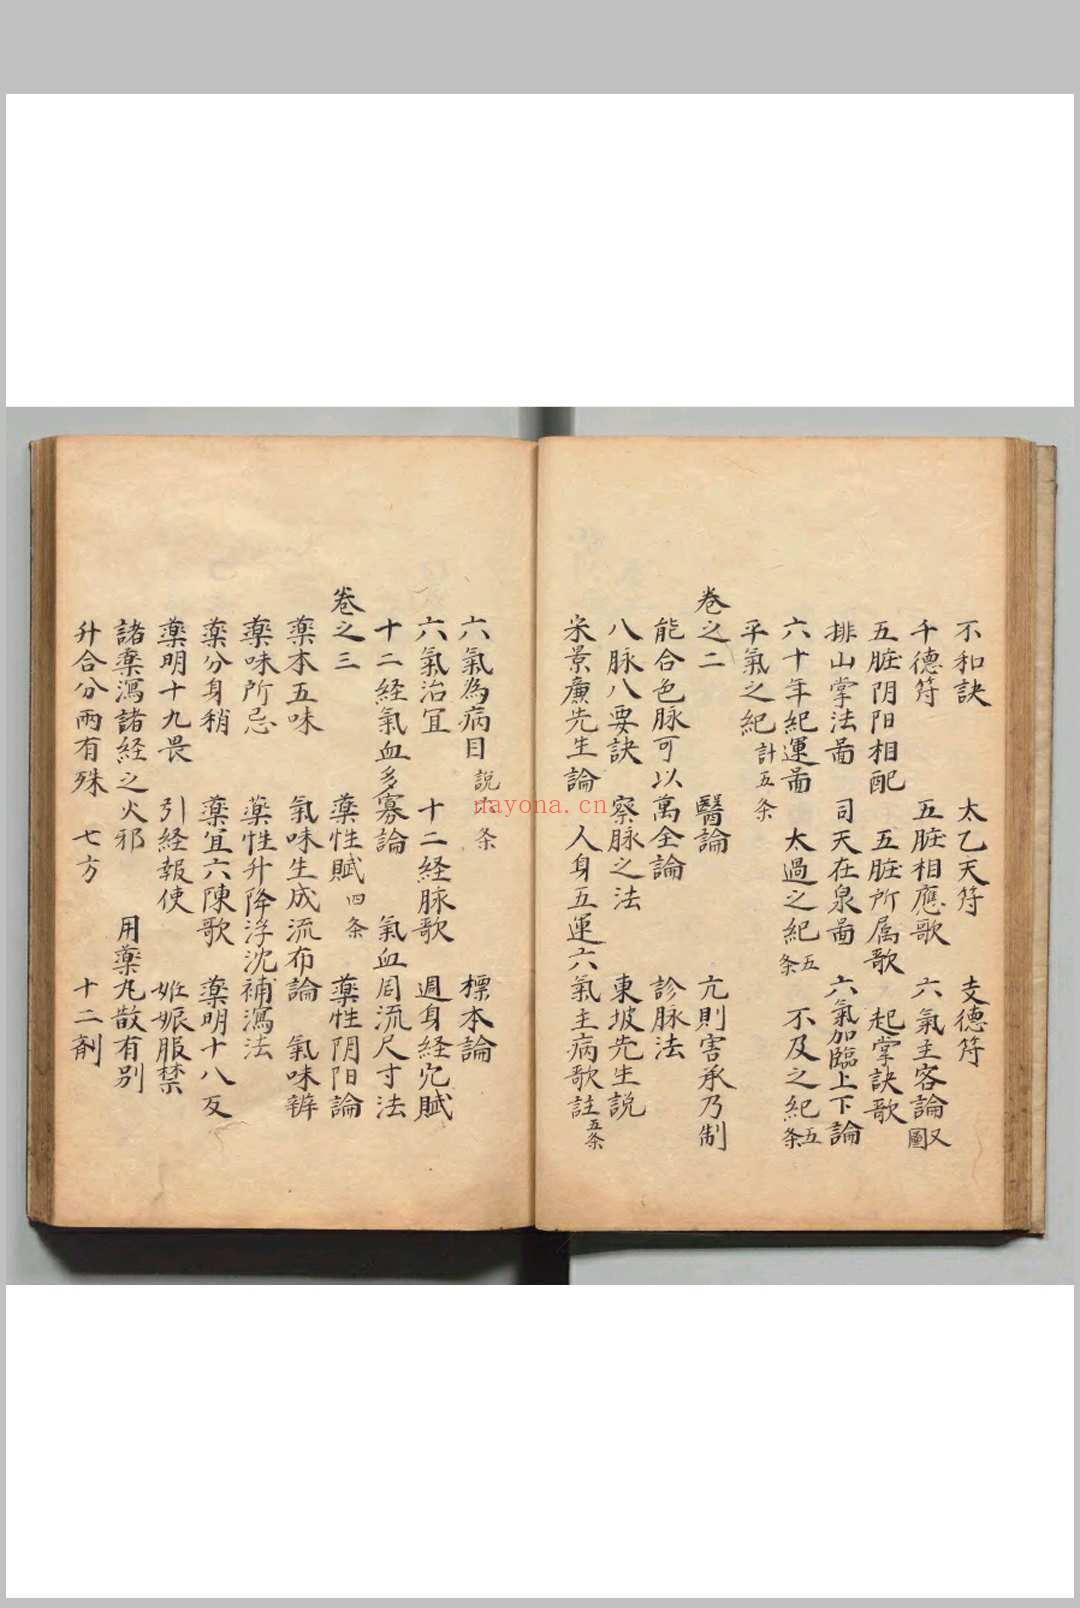 不和訣 太乙天符 支德符
千德符 五脏相應歌 六氣主客論 又圖
五脏阴阳相配 五脏所属歌 起掌訣歌
排山掌法啚 司天在泉啚 六氣加臨上下論
六十年紀運啚 太過之紀 五条 不及之紀 五条
平氣之紀 計五条
卷之二 醫論 亢則害承乃制
能合色脉可以萬全論 診脉法
八脉八要訣 察脉之法 東坡先生説
宋景廉先生論 人身五運六氣主病歌註 五条
六氣為病目 説六条 標本論
六氣治冝 十二経脉歌 週身経穴賦
十二経氣血多寡論 氣血周流尺寸法
卷之三 藥性賦 四条 藥性阴阳論
藥本五味 氣味生成流布論 氣味辨
藥味所忌 藥性升降浮沈補瀉法
藥分身稍 藥宜六陳歌 藥明十八反
藥明十九畏 引経報使 妊娠服禁
諸藥瀉諸経之火邪 用藥丸散有别
升合分兩有殊 七方 十二剤
nayona.cn